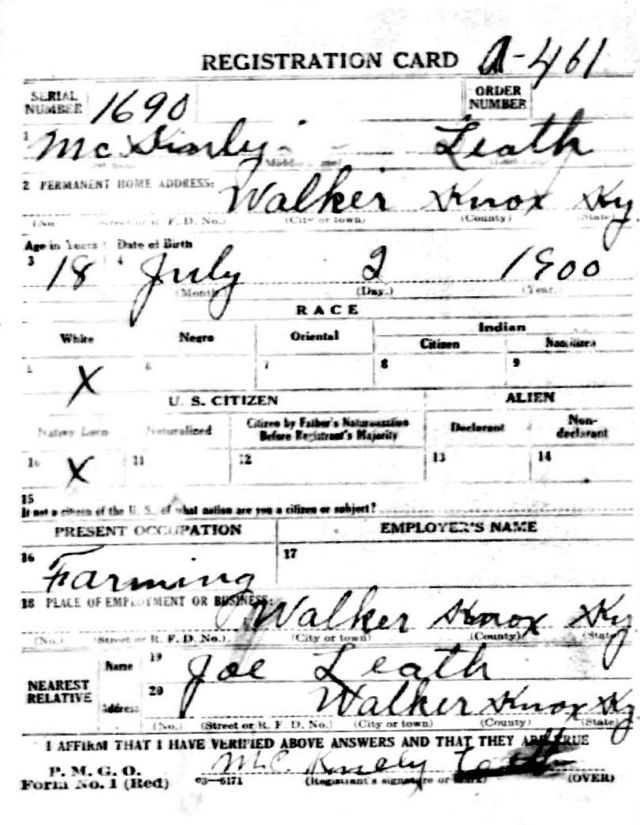 REGISTRATION CARD A-461
SERIAL NUMBER 1690 ORDER NUMBER
1 McKinley Leath
2 PERMANENT HOME ADDRESS: Walker Knox Ky
(No.) (Street or R. F. D. No.) (City or town) (County) (State)
Age in Years Date of Birth
3 18 4 July 2 1900
(Month) (Day.) (Year)
RACE
White Negro Oriental Indian
Citizen Noncitizen
5 X 6 7 8 9
U. S. CITIZEN ALIEN
Native Born Naturalized Citizen by Father's Naturalization Before Registrant's Majority Declarant Non-declarant
10 X 11 12 13 14
15
If not a citizen of the U. S., of what nation are you a citizen or subject?
PRESENT OCCUPATION EMPLOYER'S NAME
16 Farming 17
18 PLACE OF EMPLOYMENT OR BUSINESS: Walker Knox Ky
(No.) (Street or R. F. D. No.) (City or town) (County) (State)
NEAREST RELATIVE Name 19 Joe Leath
Address 20 Walker Knox Ky
(No.) (Street or R. F. D. No.) (City or town) (County) (State)
I AFFIRM THAT I HAVE VERIFIED ABOVE ANSWERS AND THAT THEY ARE TRUE
P. M. G. O.
Form No. 1 (Red) 03—6171 (Registrant's signature or mark) (OVER)